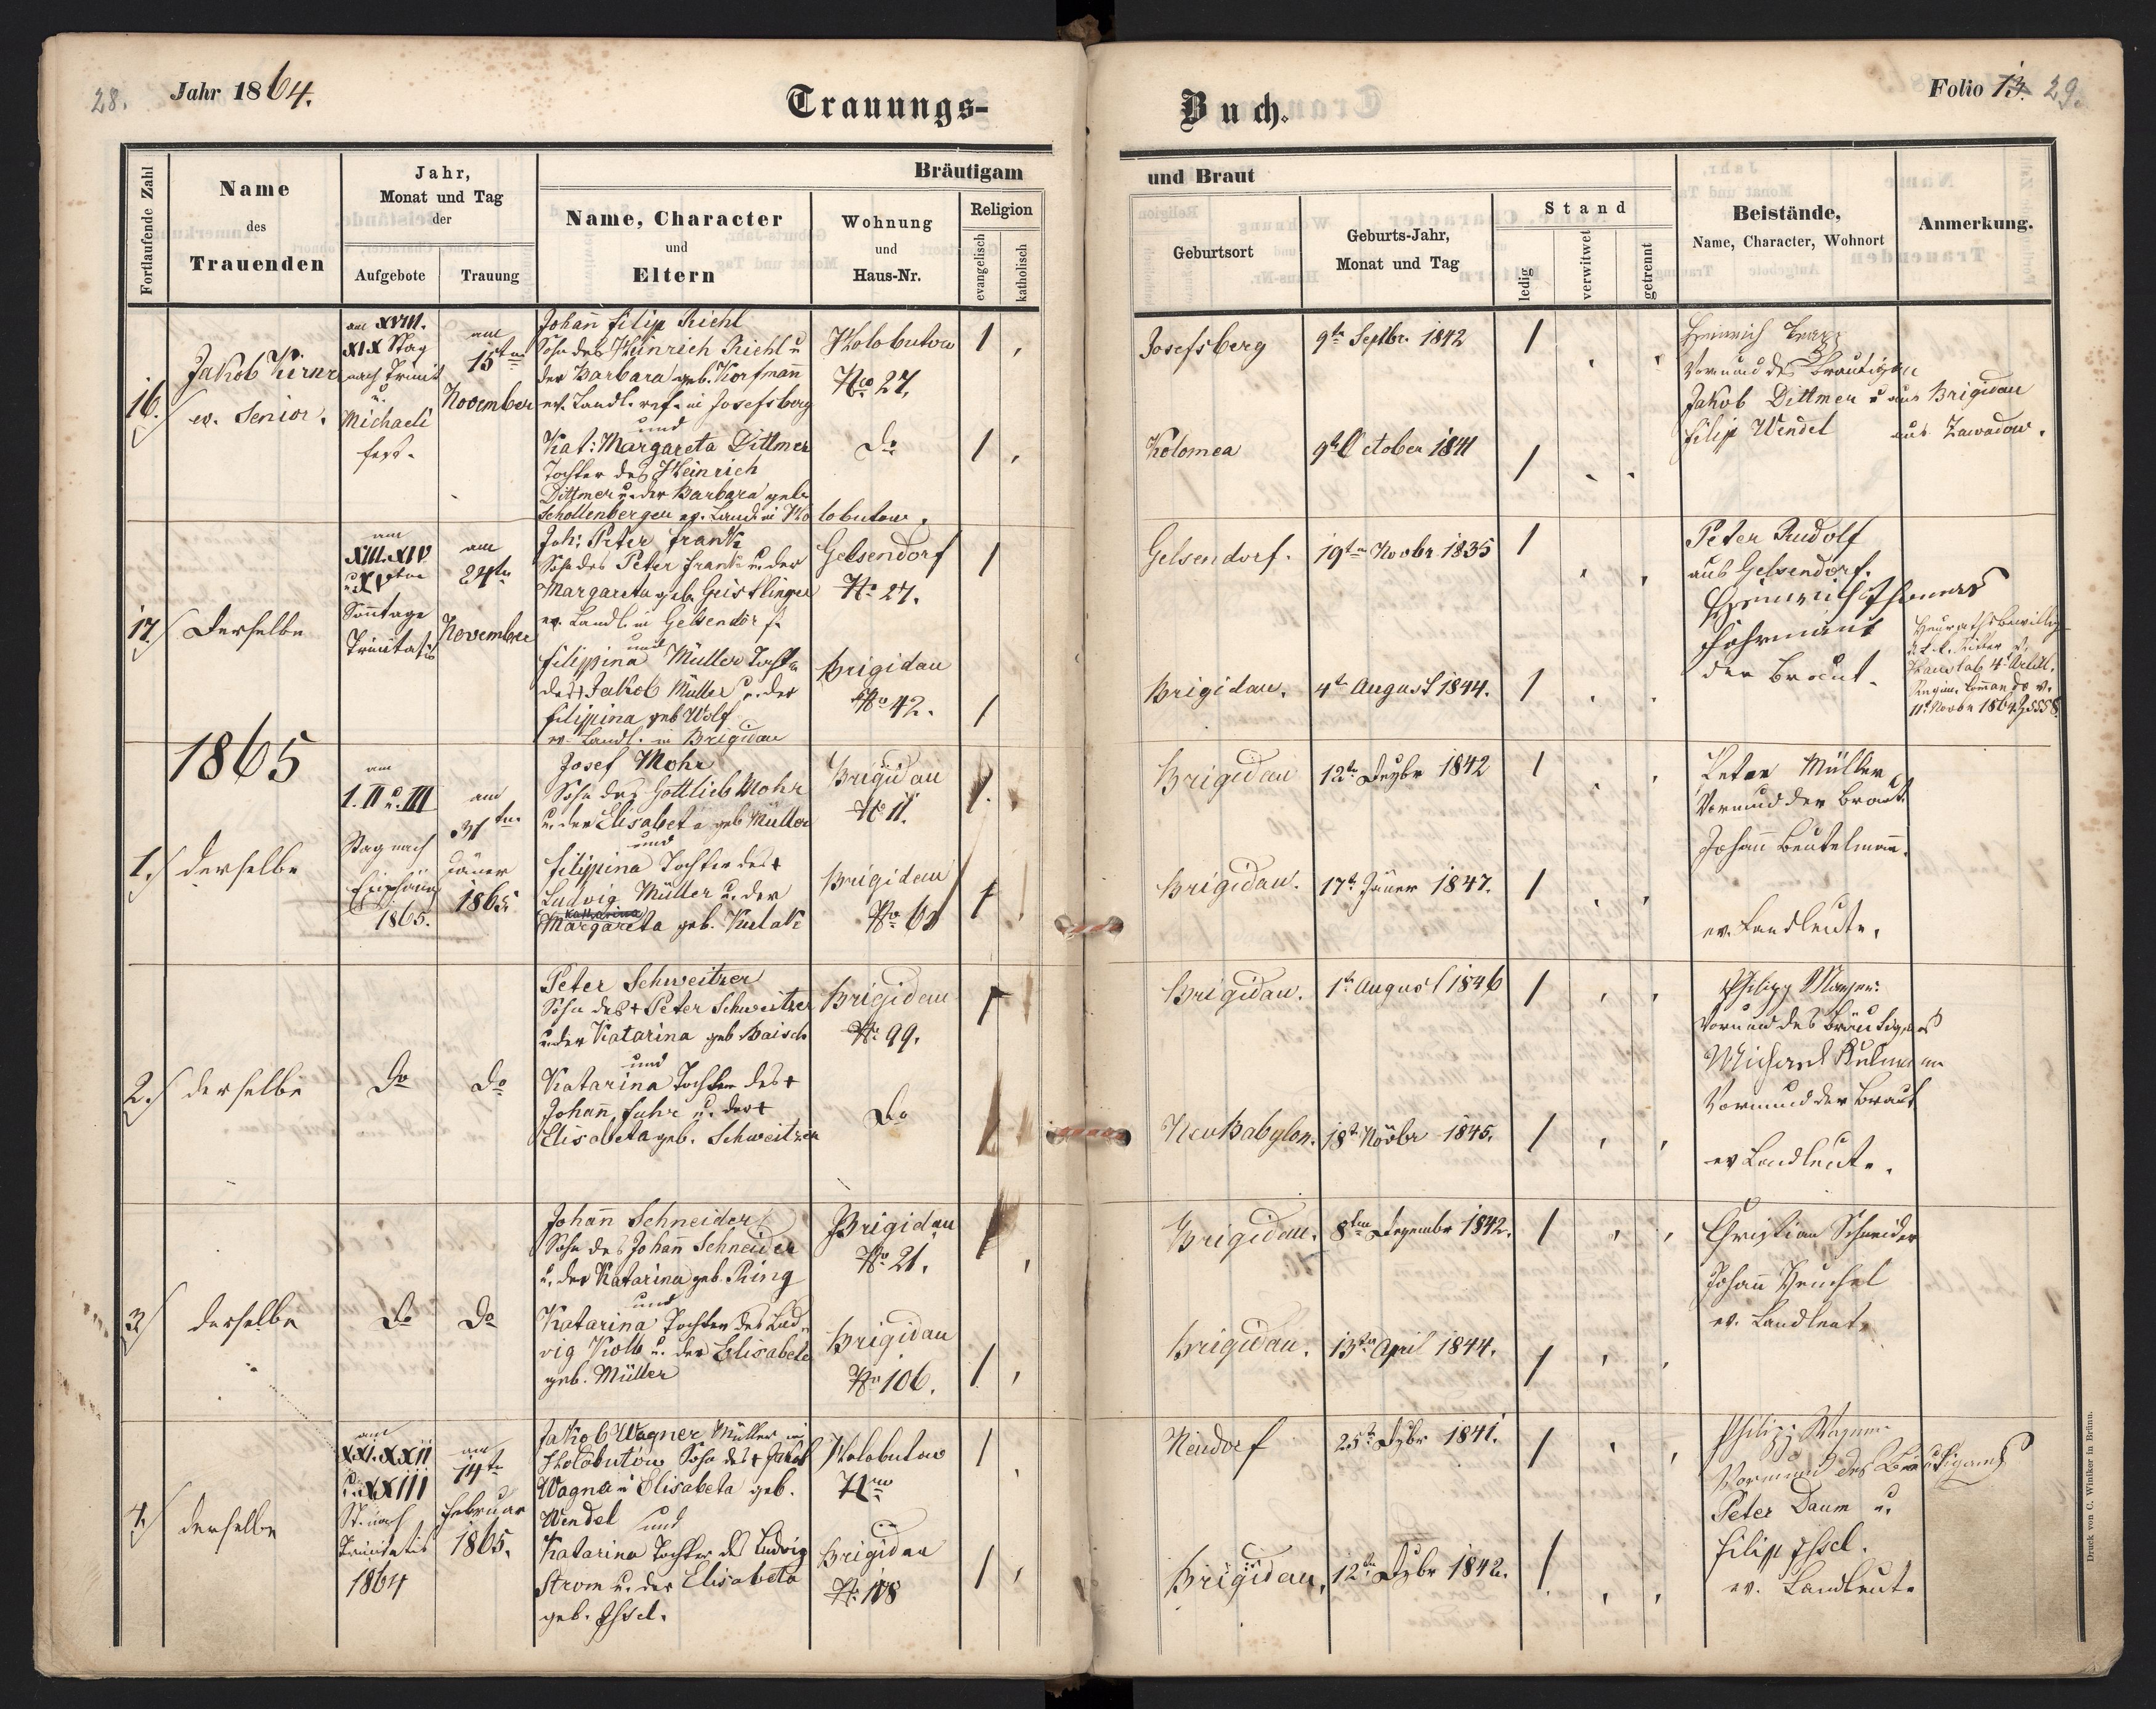 28. Jahr 1864. Trauungs-
Buch. Folio 13. 29.
Fortlaufende Zahl
Name
des
Trauenden
Jahr,
Monat und Tag
der
Aufgebote
Trauung
Bräutigam
Name, Character
und
Eltern
Wohnung
und
Haus-Nr.
Religion
evangelisch
katholisch
und Braut
Geburtsort
Geburts-Jahr,
Monat und Tag
Stand
ledig
verwitwet
getrennt
Beistände,
Name, Character, Wohnort
Anmerkung.
16.
Jakob Kerner
ev. Senior.
am XVIII.
XIX Stag
nach Trinit
u.
Michaeli
fest.
am
15ten
November
Johañ Filip Riehl
Sohn des Heinrich Riehl u
der Barbara geb. Korfmañ
ev. Landl. ref. in Josefsberg
und
Kat: Margareta Dittmer
Tochter des Heinrich
Dittmer u. der Barbara geb
Schollenberger ev. Landl. in Ho
lobutow.
Holobutow
Nro 27.
do
Josefsberg
9tn Septbr. 1842
Kolomea
9tn October 1841
Heinrich
Vormund des Bräutigam
Jakob Dittmer u aus Brigidau
Filip Wendel aus Zawadow.
17.
Derselbe
am
XIII. XIV
u. XVten
Soñtage
Trinitatis
am
24tn
November
Joh: Peter Frank
Sohn des Peter Frank u. der
Margareta geb. Geistlinger
ev. Landl. in Gelsendorf.
und
Filippina Müller Tocht.
des + Jakob Müller u. der
Filipina geb Wolf
ev. Landl. in Brigidau
Gelsendorf
No 27.
Brigidau
No 42.
Gelsendorf.
19tn Novbr 1835
Brigidau.
4tn August 1844.
Peter Rudolf
aus Gelsendorf.
Heinrich
der Braut.
Heurathsbewillig
11t Novbr 1864
1865
1.
derselbe
am
I. II u. III
Stag nach
Epiphania
1865.
am
31ten
Jäner
1865.
Josef Mohr
Sohn des Gottlieb Mohr
u. der Elisabeta geb. Müller
und
Filippina Tochter des +
Ludwig Müller u. der
Katharina
Margareta geb. Kulak
Brigidau
No 11.
Brigidau
No 61
Brigidau
12tn Dezbr 1842
Brigidau.
17tn Jäner 1847.
Peter Müller
Vormund der Braut.
Johañ Beutelmañ.
ev. Landleute.
2.
derselbe
do
do
Peter Schweitzer
Sohn des + Peter Schweitzer
u. der Katarina geb. Baisch
und
Katarina Tochter des +
Johañ Fuhr u. der +
Elisabeta geb. Schweitzer
Brigidau
No 99.
do
Brigidau.
1tn August 1846
Neu Babylon.
18tn Novbr 1845.
Philipp Mayer:
Vormund des Bräutigams
Michael Kulmann
Vormund der Braut
ev Landleute.
3.
derselbe
do
do
Johañ Schneider
Sohn des Johañ Schneider
u. der Katarina geb. Ring
und
Katarina Tochter des Lud
wig Kolb u. der Elisabeta
geb. Müller
Brigidau
No 21.
Brigidau
No 106.
Brigidau.
8ten Dezembr 1842.
Brigidau.
13tn April 1844.
Christian Schneider
Johañ Heuchel
ev. Landleute
4.
derselbe
am
XXI. XXII
u. XXIII
St. nach
Trinitatis
1864
am
14tn
Februar
1865.
Jakob Wagner Müller in
Holobutów Sohn des + Jakob
Wagner u Elisabeta geb.
Wendel und
Katarina Tochter des Ludwig
Strom u. der Elisabeta
geb. Issel.
Holobutow
Brigidau
No 108
Neudorf
25tn Dzbr 1841.
Brigidau.
12tn Dzbr 1842.
Philipp Wagner
Vormund des Bräutigams
Peter Daum u.
Filip Issel.
ev. Landleute
Druck von C. Winiker in Brünn.